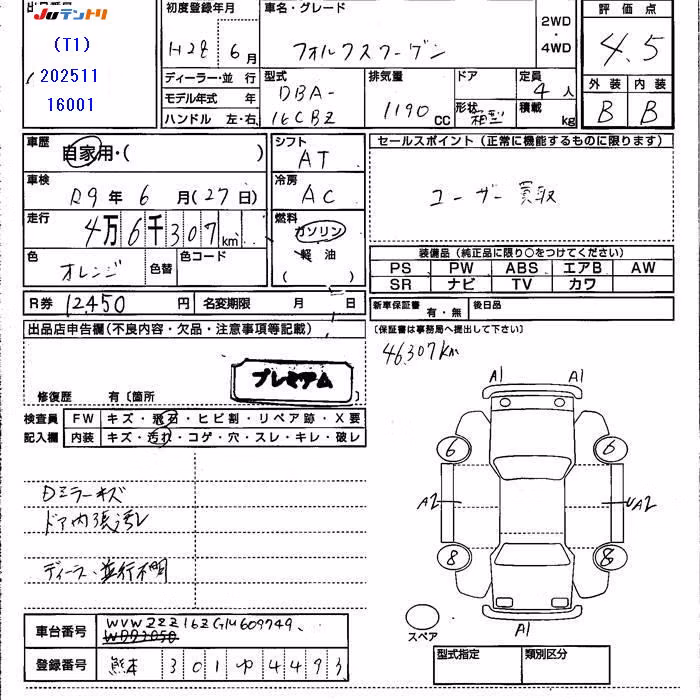 出品番号
JUテントリ
(T1)
202511
16001
初度登録年月
H28 6月
車名・グレード
フォルクスワーゲン
2WD
・
4WD
評価点
4.5
外装 内装
B B
ディーラー・並行
モデル年式 年
ハンドル 左・右
型式
DBA-
16CBZ
排気量
1190 cc
ドア
形状 箱型
定員
4人
積載
kg
車歴
自家用・( )
車検
R9年 6月(27日)
走行
4万6千307km
色
オレンジ
色替
色コード
R券 12,450円
名変期限 月 日
シフト
AT
冷房
AC
燃料
ガソリン
軽油
( )
セールスポイント(正常に機能するものに限ります)
ユーザー買取
装備品(純正品に限り○をつけてください)
PS PW ABS エアB AW
SR ナビ TV カワ
新車保証書 有・無
後日品
(保証書は事務局へ提出して下さい)
46,307km
出品店申告欄(不良内容・欠品・注意事項等記載)
プレミアム
修復歴 有〔箇所 〕
検査員
記入欄
FW キズ・飛石・ヒビ割・リペア跡・X要
内装 キズ・汚れ・コゲ・穴・スレ・キレ・破レ
Dミラーキズ
ドア内張汚レ
ディーラー・並行不明
A1 A1
6 6
A2 A2
8 8
A1
スペア
車台番号
WVWZZZ16ZGM609749
登録番号
熊本 301 ゆ 4493
型式指定
類別区分